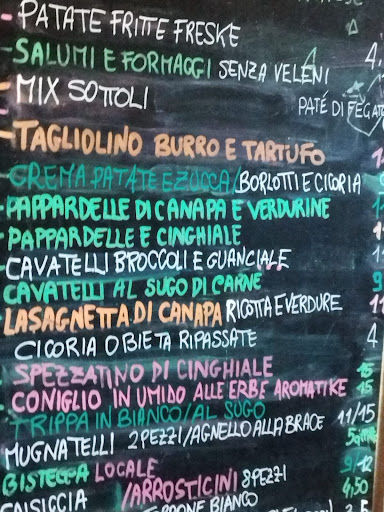 - PATATE FRITTE FRESKE
- SALUMI E FORMAGGI SENZA VELENI 4
- MIX SOTTOLI
PATÉ DI FEGATO
- TAGLIOLINO BURRO E TARTUFO
- CREMA PATATE E ZUCCA/BORLOTTI E CICORIA 9
- PAPPARDELLE DI CANAPA E VERDURINE
- PAPPARDELLE E CINGHIALE
CAVATELLI BROCCOLI E GUANCIALE
CAVATELLI AL SUGO DI CARNE 9
LASAGNETTA DI CANAPA RICOTTA E VERDURE
CICORIA O BIETA RIPASSATE 4
- SPEZZATINO DI CINGHIALE 15
- CONIGLIO IN UMIDO ALLE ERBE AROMATIKE 15
- TRIPPA IN BIANCO/AL SUGO
MUGNATELLI 2PEZZI/AGNELLO ALLA BRACE 11/15
BISTECCA LOCALE 9/12
/ARROSTICINI 8PEZZI 4,50
BIANCO